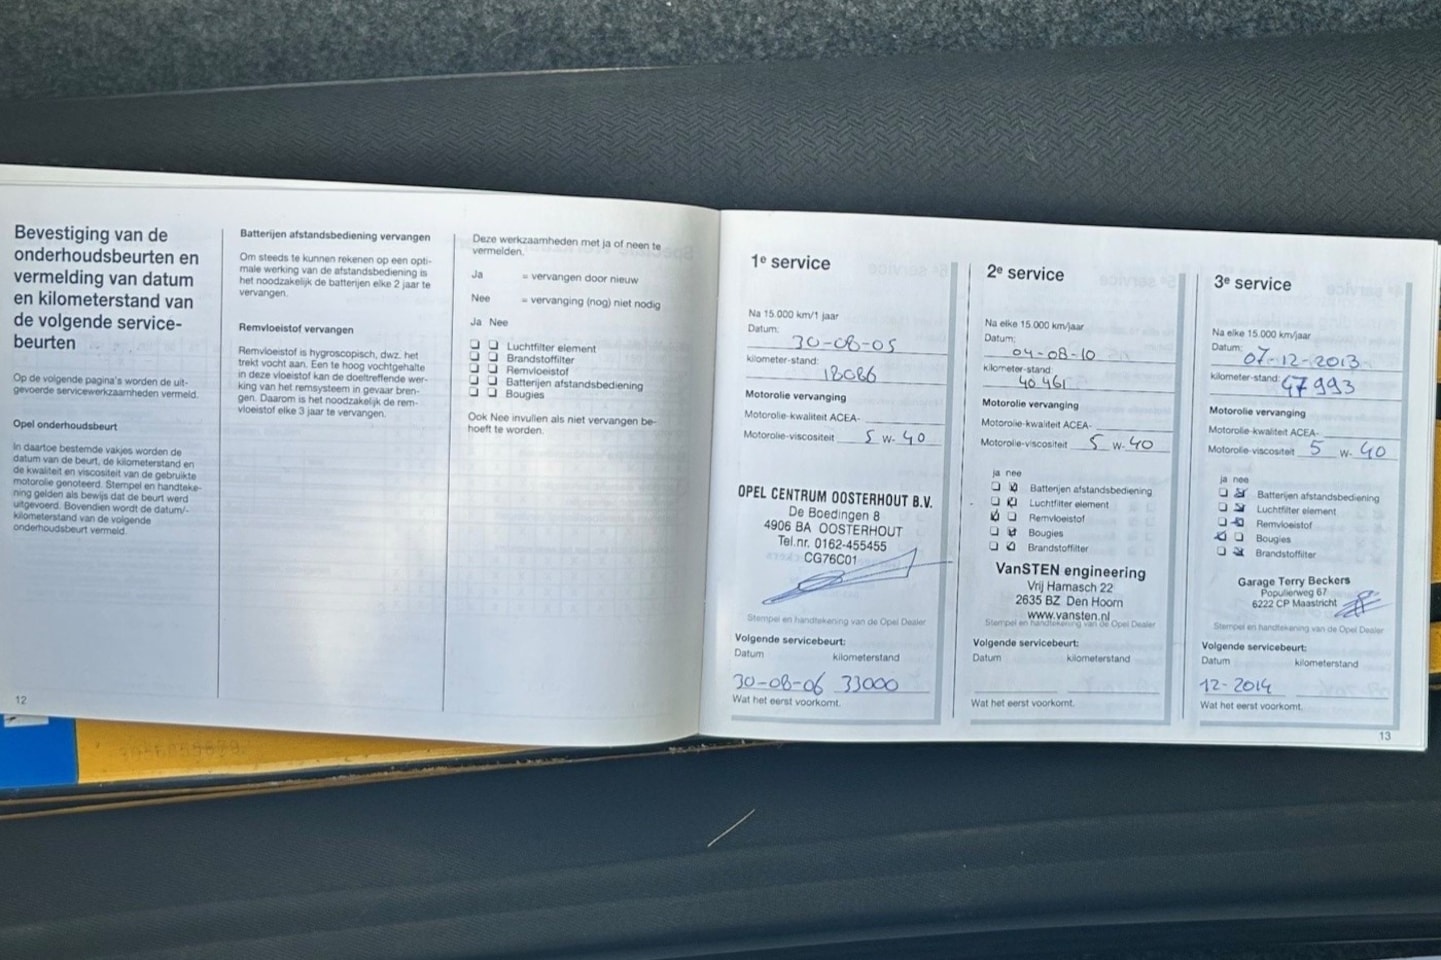 Bevestiging van de
onderhoudsbeurten en
vermelding van datum
en kilometerstand van
de volgende service-
beurten
Op de volgende pagina's worden de uit-
gevoerde servicewerkzaamheden vermeld.
Opel onderhoudsbeurt
In daartoe bestemde vakjes worden de
datum van de beurt, de kilometerstand en
de kwaliteit en viscositeit van de gebruikte
motorolie genoteerd. Stempel en handteke-
ning gelden als bewijs dat de beurt werd
uitgevoerd. Bovendien wordt de datum/-
kilometerstand van de volgende
onderhoudsbeurt vermeld.
12
Batterijen afstandsbediening vervangen
Om steeds te kunnen rekenen op een opti-
male werking van de afstandsbediening is
het noodzakelijk de batterijen elke 2 jaar te
vervangen.
Remvloeistof vervangen
Remvloeistof is hygroscopisch, dwz. het
trekt vocht aan. Een te hoog vochtgehalte
in deze vloeistof kan de doeltreffende wer-
king van het remsysteem in gevaar bren-
gen. Daarom is het noodzakelijk de rem-
vloeistof elke 3 jaar te vervangen.
Deze werkzaamheden met ja of neen te
vermelden.
Ja = vervangen door nieuw
Nee = vervanging (nog) niet nodig
Ja Nee
Luchtfilter element
Brandstoffilter
Remvloeistof
Batterijen afstandsbediening
Bougies
Ook Nee invullen als niet vervangen be-
hoeft te worden.
1e service
Na 15.000 km/1 jaar
Datum:
30-08-05
kilometer-stand:
18086
Motorolie vervanging
Motorolie-kwaliteit ACEA-
Motorolie-viscositeit 5 W- 40
OPEL CENTRUM OOSTERHOUT B.V.
De Boedingen 8
4906 BA OOSTERHOUT
Tel.nr. 0162-455455
CG76C01
Stempel en handtekening van de Opel Dealer
Volgende servicebeurt:
Datum kilometerstand
30-08-06 33000
Wat het eerst voorkomt.
2e service
Na elke 15.000 km/jaar
Datum:
04-08-10
kilometer-stand:
40.461
Motorolie vervanging
Motorolie-kwaliteit ACEA-
Motorolie-viscositeit 5 W- 40
ja nee
Batterijen afstandsbediening
Luchtfilter element
Remvloeistof
Bougies
Brandstoffilter
VanSTEN engineering
Vrij Harnasch 22
2635 BZ Den Hoorn
www.vansten.nl
Stempel en handtekening van de Opel Dealer
Volgende servicebeurt:
Datum kilometerstand
Wat het eerst voorkomt.
3e service
Na elke 15.000 km/jaar
Datum: 07-12-2013
kilometer-stand: 47993
Motorolie vervanging
Motorolie-kwaliteit ACEA-
Motorolie-viscositeit 5 W- 40
ja nee
Batterijen afstandsbediening
Luchtfilter element
Remvloeistof
Bougies
Brandstoffilter
Garage Terry Beckers
Populierweg 67
6222 CP Maastricht
Stempel en handtekening van de Opel Dealer
Volgende servicebeurt:
Datum kilometerstand
12-2014
Wat het eerst voorkomt.
13